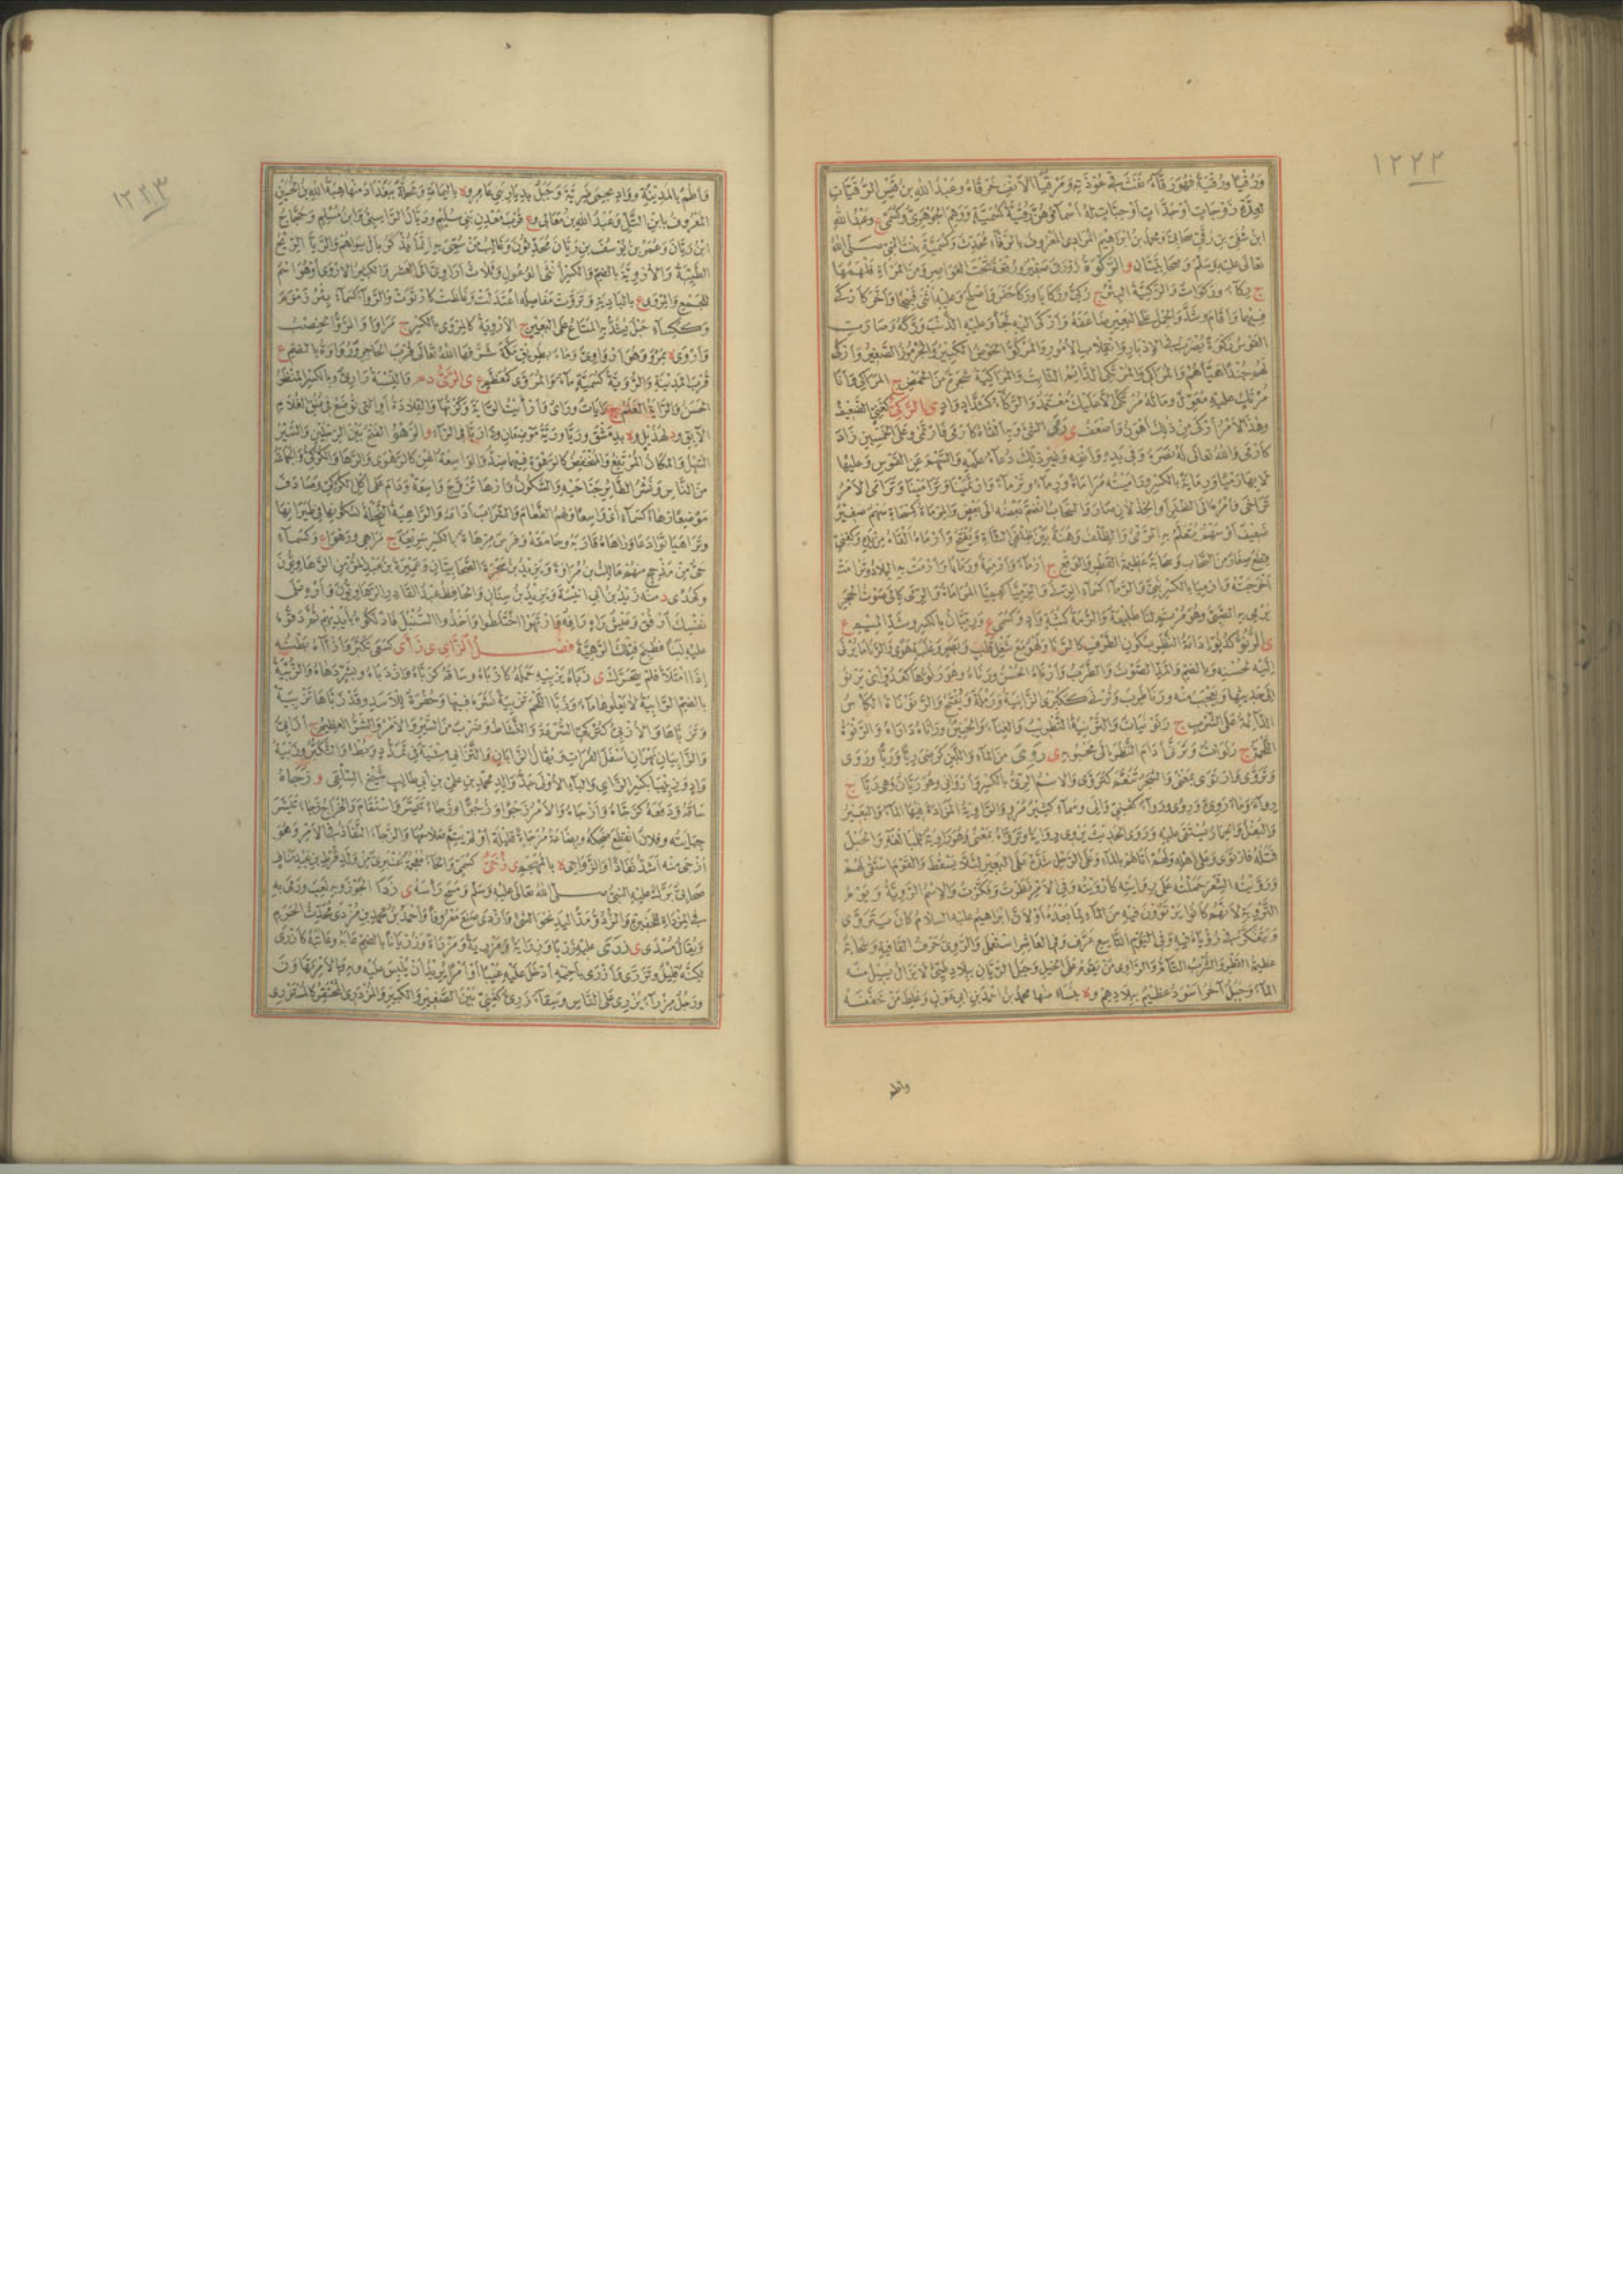 ١٢٢٢
وَرُقِيًّا وَرُقْيَةً فَهُوَ رَقَّاءٌ نَفَثَ فِي عُوذَتِهِ وَمَرْقَيَا الأَنْفِ حَرْفَاهُ وَعَبْدُ اللهِ بْنُ قَيْسِ الرُّقَيَّاتِ
لِعِدَّةِ زَوْجَاتٍ أَوْ جَدَّاتٍ أَوْ حِبَّاتٍ لَهُ أَسْمَاؤُهُنَّ رُقَيَّةُ كَسُمَيَّةَ وَوَهِمَ الجَوْهَرِيُّ وَكَسُمَيٍّ ع وَعَبْدُ اللهِ
ابْنُ شُفَيِّ بْنِ رُقَيٍّ صَحَابِيٌّ وَمُحَمَّدُ بْنُ إِبْرَاهِيمَ المُرَادِيُّ المَعْرُوفُ بِابْنِ الرَّقَّاءِ مُحَدِّثٌ وَكَسُمَيَّةَ بِنْتُ النَّبِيِّ صَلَّى اللهُ
تَعَالَى عَلَيْهِ وَسَلَّمَ وَصَحَابِيَّتَانِ و الرَّكْوَةُ زَوْرَقٌ صَغِيرٌ وَرُقْعَةٌ تَحْتَ العَوَاصِرِ وَمِنَ المَرْأَةِ فَلْهَمُهَا
ج رِكَاءٌ وَرَكَوَاتٌ وَالرَّكِيَّةُ البِئْرُ ج رَكِيٌّ وَرَكَايَا وَرَكَا حَفَرَ وَأَصْلَحَ وَعَلَيْهِ أَثْنَى قَبِيحًا وَأَخَّرَ كَأَرْكَى
فِيهِمَا وَأَقَامَ وَشَدَّ وَالحِمْلَ عَلَى البَعِيرِ ضَاعَفَهُ وَأَرْكَى إِلَيْهِ لَجَأَ وَعَلَيْهِ الذَّنْبَ وَرَّكَهُ وَصَارَتِ
القَوْسُ رَكْوَةً يُضْرَبُ فِي الإِدْبَارِ وَانْقِلَابِ الأُمُورِ وَالمَرْكُوُّ الحَوْضُ الكَبِيرُ وَالجُرْمُوزُ الصَّغِيرُ وَأَرْكَى
لَهُمْ جُنْدًا هَيَّأَهُمْ وَالمُرَاكِي وَالمُرْتَكِي الدَّائِمُ الثَّابِتُ وَالمَرَاكِيَةُ شَجَرَةٌ مِنَ الحَمْضِ ج المَرَاكِي وَأَنَا
مُرْتَكٍ عَلَيْهِ مُعَوِّلٌ وَمَا لَهُ مُرْتَكًى إِلَّا عَلَيْكَ مُعْتَمَدٌ وَالرَّكَّاءُ كَشَدَّادٍ وَادٍ ي الرَّكِيُّ كَغَنِيٍّ الضَّعِيفُ
وَهَذَا الأَمْرُ أَرْكَى مِنْ ذَلِكَ أَهْوَنُ وَأَضْعَفُ ي رَمَى الشَّيْءَ وَبِهِ أَلْقَاهُ كَأَرْمَى فَارْتَمَى وَعَلَى الخَمْسِينَ زَادَ
كَأَرْمَى وَاللهُ تَعَالَى لَهُ نَصَرَهُ وَفِي يَدِهِ وَأَنْفِهِ وَغَيْرِ ذَلِكَ دُعَاءٌ عَلَيْهِ وَالسَّهْمَ عَنِ القَوْسِ وَعَلَيْهَا
لَا بِهَا رَمْيًا وَرِمَايَةً بِالكَسْرِ وَرَامَيْتُهُ مُرَامَاةً وَرِمَاءً وَتِرْمَاءً وَارْتَمَيْنَا وَتَرَامَيْنَا وَتَرَامَى الأَمْرُ
تَرَاخَى وَأَمْرُهُ إِلَى الظَّفَرِ أَوِ الخِذْلَانِ صَارَ وَالسَّحَابُ انْضَمَّ بَعْضُهُ إِلَى بَعْضٍ وَالمِرْمَاةُ كَمِسْحَاةٍ سَهْمٌ صَغِيرٌ
ضَعِيفٌ أَوْ سَهْمٌ يُتَعَلَّمُ بِهِ الرَّمْيُ وَالظِّلْفُ وَهَنَةٌ بَيْنَ ظِلْفَيِ الشَّاةِ وَيُفْتَحُ وَأَرْمَاهُ أَلْقَاهُ مِنْ يَدِهِ وَكَغَنِيٍّ
قِطَعٌ صِغَارٌ مِنَ السَّحَابِ وَسَحَابَةٌ عَظِيمَةُ القَطْرِ وَالوَقْعِ ج أَرْمَاءٌ وَأَرْمِيَةٌ وَرَمَايَا وَأَرْمَتْ بِهِ البِلَادُ وَتَرَامَتْ
أَخْرَجَتْهُ وَإِرْمِيَا بِالكَسْرِ نَبِيٌّ وَالرَّمَاءُ كَسَمَاءٍ الرِّبَا وَالرِّمِّيَّا كَعِمِّيَّا المُرَامَاةُ وَالرَّمَى كَإِلَى صَوْتُ الحَجَرِ
يَرْمِي بِهِ الصَّبِيُّ وَهُوَ مُرْتَمٍ لَنَا طَلِيعَةٌ وَالرُّمَةُ كَثُبَةٍ وَادٍ وَكَسُمَيٍّ ع وَرِمِيَّانُ بِالكَسْرِ وَشَدِّ المِيمِ ع
ي الرُّنُوُّ كَدُنُوٍّ إِدَامَةُ النَّظَرِ بِسُكُونِ الطَّرْفِ كَالرَّنَا وَلَهْوٌ مَعَ شُغْلِ قَلْبٍ وَبَصَرٍ وَغَلَبَةِ هَوًى وَالرَّنَا مَا يُرْنَى
إِلَيْهِ لِحُسْنِهِ وَبِالضَّمِّ وَالمَدِّ الصَّوْتُ وَالطَّرَبُ وَأَرْنَاهُ الحُسْنُ وَرَنَّاهُ وَهُوَ رَنُوُّهَا كَعَدُوٍّ أَيْ يَرْنُو
إِلَى حَدِيثِهَا وَيُعْجَبُ مِنْهُ وَرَنَا طَرِبَ وَتُرْنَى كَكُبْرَى الزَّانِيَةُ وَرَمْلَةٌ وَيُفْتَحُ وَالرَّنَوْنَاةُ الكَأْسُ
الدَّائِمَةُ عَلَى الشُّرْبِ ج رَنَوْنَيَاتٌ وَالتَّرْنِيَةُ التَّطْرِيبُ وَالغِنَاءُ وَالحَنِينُ وَرَانَاهُ دَارَاهُ وَالرَّنْوَةُ
اللَّحْمَةُ ج رَنَوَاتٌ وَتَرَنَّى أَدَامَ النَّظَرَ إِلَى مَحْبُوبِهِ ي رَوِيَ مِنَ المَاءِ وَاللَّبَنِ كَرَضِيَ رِيًّا وَرَيًّا وَرَوَى
وَتَرَوَّى وَارْتَوَى بِمَعْنًى وَالشَّجَرُ تَنَعَّمَ كَتَرَوَّى وَالاسْمُ الرِّيُّ بِالكَسْرِ وَأَرْوَانِي وَهُوَ رَيَّانُ وَهِيَ رَيَّا ج
رِوَاءٌ وَمَاءٌ رَوِيٌّ وَرِوًى وَرَوَاءٌ كَغَنِيٍّ وَإِلَى وَسَمَاءٍ كَثِيرٌ مُرْوٍ وَالرَّاوِيَةُ المَزَادَةُ فِيهَا المَاءُ وَالبَعِيرُ
وَالبَغْلُ وَالحِمَارُ يُسْتَقَى عَلَيْهِ وَرَوَى الحَدِيثَ يَرْوِي رِوَايَةً وَتَرَوَّاهُ بِمَعْنًى وَهُوَ رَاوِيَةٌ لِلْمُبَالَغَةِ وَالحَبْلَ
فَتَلَهُ فَارْتَوَى وَعَلَى أَهْلِهِ وَلَهُمْ أَتَاهُمْ بِالمَاءِ وَعَلَى الرَّحْلِ شَدَّهُ عَلَى البَعِيرِ لِئَلَّا يَسْقُطَ وَالقَوْمَ اسْتَقَى لَهُمْ
وَرَوَّيْتُهُ الشِّعْرَ حَمَلْتُهُ عَلَى رِوَايَتِهِ كَأَرْوَيْتُهُ وَفِي الأَمْرِ نَظَرْتُ وَفَكَّرْتُ وَالاسْمُ الرَّوِيَّةُ وَيَوْمُ
التَّرْوِيَةِ لِأَنَّهُمْ كَانُوا يَرْتَوُونَ فِيهِ مِنَ المَاءِ لِمَا بَعْدَهُ أَوْ لِأَنَّ إِبْرَاهِيمَ عَلَيْهِ السَّلَامُ كَانَ يَتَرَوَّى
وَيَتَفَكَّرُ فِي رُؤْيَاهُ فِيهِ وَفِي اليَوْمِ التَّاسِعِ عَرَفَ وَفِي العَاشِرِ اسْتَعْمَلَ وَالرَّوِيُّ حَرْفُ القَافِيَةِ وَسَحَابَةٌ
عَظِيمَةُ القَطْرِ وَالشُّرْبُ التَّامُّ وَالرَّاوِي مَنْ يَقُومُ عَلَى الخَيْلِ وَجَبَلُ الرَّيَّانِ بِبِلَادِ طَيِّئٍ لَا يَزَالُ يَسِيلُ مِنْهُ
المَاءُ وَجَبَلٌ آخَرُ أَسْوَدُ عَظِيمٌ بِبِلَادِهِمْ وة بِنَسَا مِنْهَا مُحَمَّدُ بْنُ أَحْمَدَ بْنِ أَبِي عَوْنٍ وَغَلِطَ مَنْ خَفَّفَهُ
وأطم
١٢٢٣
وَأُطُمٌ بِالمَدِينَةِ وَوَادٍ بِحِمَى ضَرِيَّةَ وَجَبَلٌ بِدِيَارِ بَنِي عَامِرٍ وة بِاليَمَامَةِ وَمَحَلَّةٌ بِبَغْدَادَ مِنْهَا هِبَةُ اللهِ بْنُ الحُسَيْنِ
المَعْرُوفُ بِابْنِ التَّلِّ وَعَبْدُ اللهِ بْنُ مَعَالِي وع قُرْبَ مَعْدِنِ بَنِي سُلَيْمٍ وَرَيَّانُ الرَّاسِبِيُّ وَابْنُ مُسْلِمٍ وَحَجَّاجُ
ابْنُ رَيَّانَ وَعُمَرُ بْنُ يُوسُفَ بْنِ رَيَّانَ مُحَدِّثُونَ وَغَالِبُ مَنْ سُمِّيَ بِهِ إِنَّمَا يُذْكَرُ بِأَلْ سِوَاهُمْ وَالرَّيَّا الرِّيحُ
الطَّيِّبَةُ وَالأُرْوِيَّةُ بِالضَّمِّ وَالكَسْرِ أُنْثَى الوُعُولِ وَثَلَاثُ أَرَاوِيَّ إِلَى العَشْرِ وَالكَثِيرُ الأَرْوَى أَوْ هُوَ اسْمٌ
لِلْجَمْعِ وَالمَرْوَى ع بِالبَادِيَةِ وَتَرَوَّتْ مَفَاصِلُهُ اعْتَدَلَتْ وَغَلُظَتْ كَارْتَوَتْ وَالرَّوَاءُ كَسَمَاءٍ بِئْرُ زَمْزَمَ
وَكَكِسَاءٍ حَبْلٌ يُشَدُّ بِهِ المَتَاعُ عَلَى البَعِيرِ ج الأَرْوِيَةُ كَالمِرْوَى بِالكَسْرِ ج مَرَاوَى وَالرَّوَّا الخِصْبُ
وَأَرْوَى ة بِمَرْوَ وَهُوَ أَرْوَاوِيٌّ وَمَاءٌ بِطَرِيقِ مَكَّةَ شَرَّفَهَا اللهُ تَعَالَى قُرْبَ الحَاجِرِ وَرُوَاوَةُ بِالضَّمِّ ع
قُرْبَ المَدِينَةِ وَالرُّوَيَّةُ كَسُمَيَّةَ مَاءٌ وَالمُرَوَّى كَمُعَظَّمٍ ع ي الرَّيُّ د م وَالنِّسْبَةُ رَازِيٌّ وَبِالكَسْرِ المَنْظَرُ
الحَسَنُ وَالرَّايَةُ العَلَمُ ج رَايَاتٌ وَرَايٌ وَأَرْأَيْتُ الرَّايَةَ رَكَزْتُهَا وَالقِلَادَةُ أَوِ الَّتِي تُوضَعُ فِي عُنُقِ الغُلَامِ
الآبِقِ ود لِهُذَيْلٍ وة بِدِمَشْقَ وَرَيَّا وَرَيَّةُ مَوْضِعَانِ وَدَارُ رَيَّا فِي الرَّاءِ و الرَّهْوُ الفَتْحُ بَيْنَ الرِّجْلَيْنِ وَالسَّيْرُ
السَّهْلُ وَالمَكَانُ المُرْتَفِعُ وَالمُنْخَفِضُ كَالرَّهْوَةِ فِيهِمَا ضِدٌّ وَالوَاسِعَةُ الهَنِ كَالرَّهْوَى وَالرَّهَا وَالكُرْكِيُّ وَالجَمَاعَةُ
مِنَ النَّاسِ وَنَشْرُ الطَّائِرِ جَنَاحَيْهِ وَالسُّكُونُ وَأَرْهَى تَزَوَّجَ وَاسِعَةً وَدَامَ عَلَى أَكْلِ الكُرْكِيِّ وَصَادَفَ
مَوْضِعًا رَهَاءً كَسَمَاءٍ أَيْ وَاسِعًا وَلَهُمُ الطَّعَامَ وَالشَّرَابَ أَدَامَهُ وَالرَّاهِيَةُ النَّحْلَةُ لِسُكُونِهَا فِي طَيَرَانِهَا
وَتَرَاهَيَا تَوَادَعَا وَرَاهَاهُ قَارَبَهُ وَحَامَقَهُ وَفَرَسٌ مِرْهَاةٌ بِالكَسْرِ سَرِيعَةٌ ج مَرَاهِي وَرَهْوٌ ع وَكَسَمَاءٍ
حَيٌّ مِنْ مَذْحِجٍ مِنْهُمْ مَالِكُ بْنُ مُرَارَةَ وَيَزِيدُ بْنُ شَجَرَةَ الصَّحَابِيَّانِ وَعَمِيرَةُ بْنُ عَبْدِ المُؤْمِنِ الرَّهَاوِيُّونَ
وَكَهُدًى د مِنْهُ زَيْدُ بْنُ أَبِي أُنَيْسَةَ وَيَزِيدُ بْنُ سِنَانٍ وَالحَافِظُ عَبْدُ القَادِرِ الرُّهَاوِيُّونَ وَأَرْهِ عَلَى
نَفْسِكَ ارْفُقْ وَعَيْشٌ رَاهٍ رَافِهٌ وَارْتَهَوْا اخْتَلَطُوا وَأَخَذُوا السُّنْبُلَ فَادَّلَكُوهُ بِأَيْدِيهِمْ ثُمَّ دَقُّوهُ
عَلَيْهِ لَبَنًا فَطُبِخَ فَتِلْكَ الرَّهِيَّةُ فَصْلُ الزَّايِ ي زَأَى كَسَعَى تَكَبَّرَ وَأَزْآهُ بَطْنُهُ
إِذَا امْتَلَأَ فَلَمْ يَتَحَرَّكْ ي زَبَاهُ يَزْبِيهِ حَمَلَهُ كَأَزْبَاهُ وَسَاقَهُ كَزَبَّاهُ وَازْدَبَاهُ وَبِشَرٍّ دَهَاهُ وَالزُّبْيَةُ
بِالضَّمِّ الرَّابِيَةُ لَا يَعْلُوهَا مَاءٌ وَزَبَّى اللَّحْمَ تَزْبِيَةً نَشَرَهُ فِيهَا وَحُفْرَةٌ لِلْأَسَدِ وَقَدْ زَبَّاهَا تَزْبِيَةً
وَتَزَبَّاهَا وَالأُزْبِيُّ كَتُرْكِيٍّ السُّرْعَةُ وَالنَّشَاطُ وَضَرْبٌ مِنَ السَّيْرِ وَالأَمْرُ وَالشَّرُّ العَظِيمُ ج أَزَابِيُّ
وَالزَّابِيَانِ نَهْرَانِ أَسْفَلَ الفُرَاتِ وَيُقَالُ الزَّابَانِ وَالتَّزَابِي مِشْيَةٌ فِي تَمَدُّدٍ وَبُطْءٍ وَالتَّكَبُّرُ وَزَبْيَةُ
وَادٍ وَزِبِيبَا بِكَسْرِ الزَّايِ وَالبَاءِ الأُولَى جَدُّ وَالِدِ مُحَمَّدِ بْنِ عَلِيِّ بْنِ أَبِي طَالِبٍ شَيْخِ السِّلَفِيِّ و زَجَاهُ
سَاقَهُ وَدَفَعَهُ كَزَجَّاهُ وَأَزْجَاهُ وَالأَمْرُ زَجْوًا وَزُجُوًّا وَزَجَاءً تَيَسَّرَ وَاسْتَقَامَ وَالخَرَاجُ زَجَاءً تَيَسَّرَ
جِبَايَتُهُ وَفُلَانٌ انْقَطَعَ ضَحِكُهُ وَبِضَاعَةٌ مُزْجَاةٌ قَلِيلَةٌ أَوْ لَمْ يَتِمَّ صَلَاحُهَا وَالزَّجَاءُ النَّفَاذُ فِي الأَمْرِ وَهُوَ
أَزْجَى مِنْهُ أَشَدُّ نَفَاذًا ي زُخَيٌّ كَسُمَيٍّ وَالخَاءُ مُعْجَمَةٌ مِنْ وَلَدِ قُرْطِ بْنِ عَبْدِ مَنَافٍ
صَحَابِيٌّ بَرَّكَ عَلَيْهِ النَّبِيُّ صَلَّى اللهُ تَعَالَى عَلَيْهِ وَسَلَّمَ وَمَسَحَ رَأْسَهُ ي زَدَا الجَوْزَ وَبِهِ لَعِبَ وَرَمَى بِهِ
فِي المِزْدَاةِ لِلْحَفِيرَةِ وَالزَّدْوُ مَدُّ اليَدِ نَحْوَ الشَّيْءِ وَأَزْدَى صَنَعَ مَعْرُوفًا وَأَحْمَدُ بْنُ مُحَمَّدِ بْنِ مُزْدًى مُحَدِّثُ الحَرَمِ
وَيُقَالُ مُسْدًى ي زَرَى عَلَيْهِ زَرْيًا وَزِرَايَةً وَمَزْرِيَةً وَمَزْرَاةً وَزُرْيَانًا بِالضَّمِّ عَابَهُ وَعَاتَبَهُ كَأَزْرَى
لَكِنَّهُ قَلِيلٌ وَتَزَرَّى وَأَزْرَى بِأَخِيهِ أَدْخَلَ عَلَيْهِ عَيْبًا أَوْ أَمْرًا يُرِيدُ أَنْ يُلَبِّسَ عَلَيْهِ بِهِ وَبِالأَمْرِ تَهَاوَنَ
وَرَجُلٌ مِزْرَاءٌ يُزْرِي عَلَى النَّاسِ وَسِقَاءٌ زَرِيٌّ كَغَنِيٍّ بَيْنَ الصَّغِيرِ وَالكَبِيرِ وَالمُزْدَرِي المُحْتَقِرُ كَالمُسْتَزْرِي